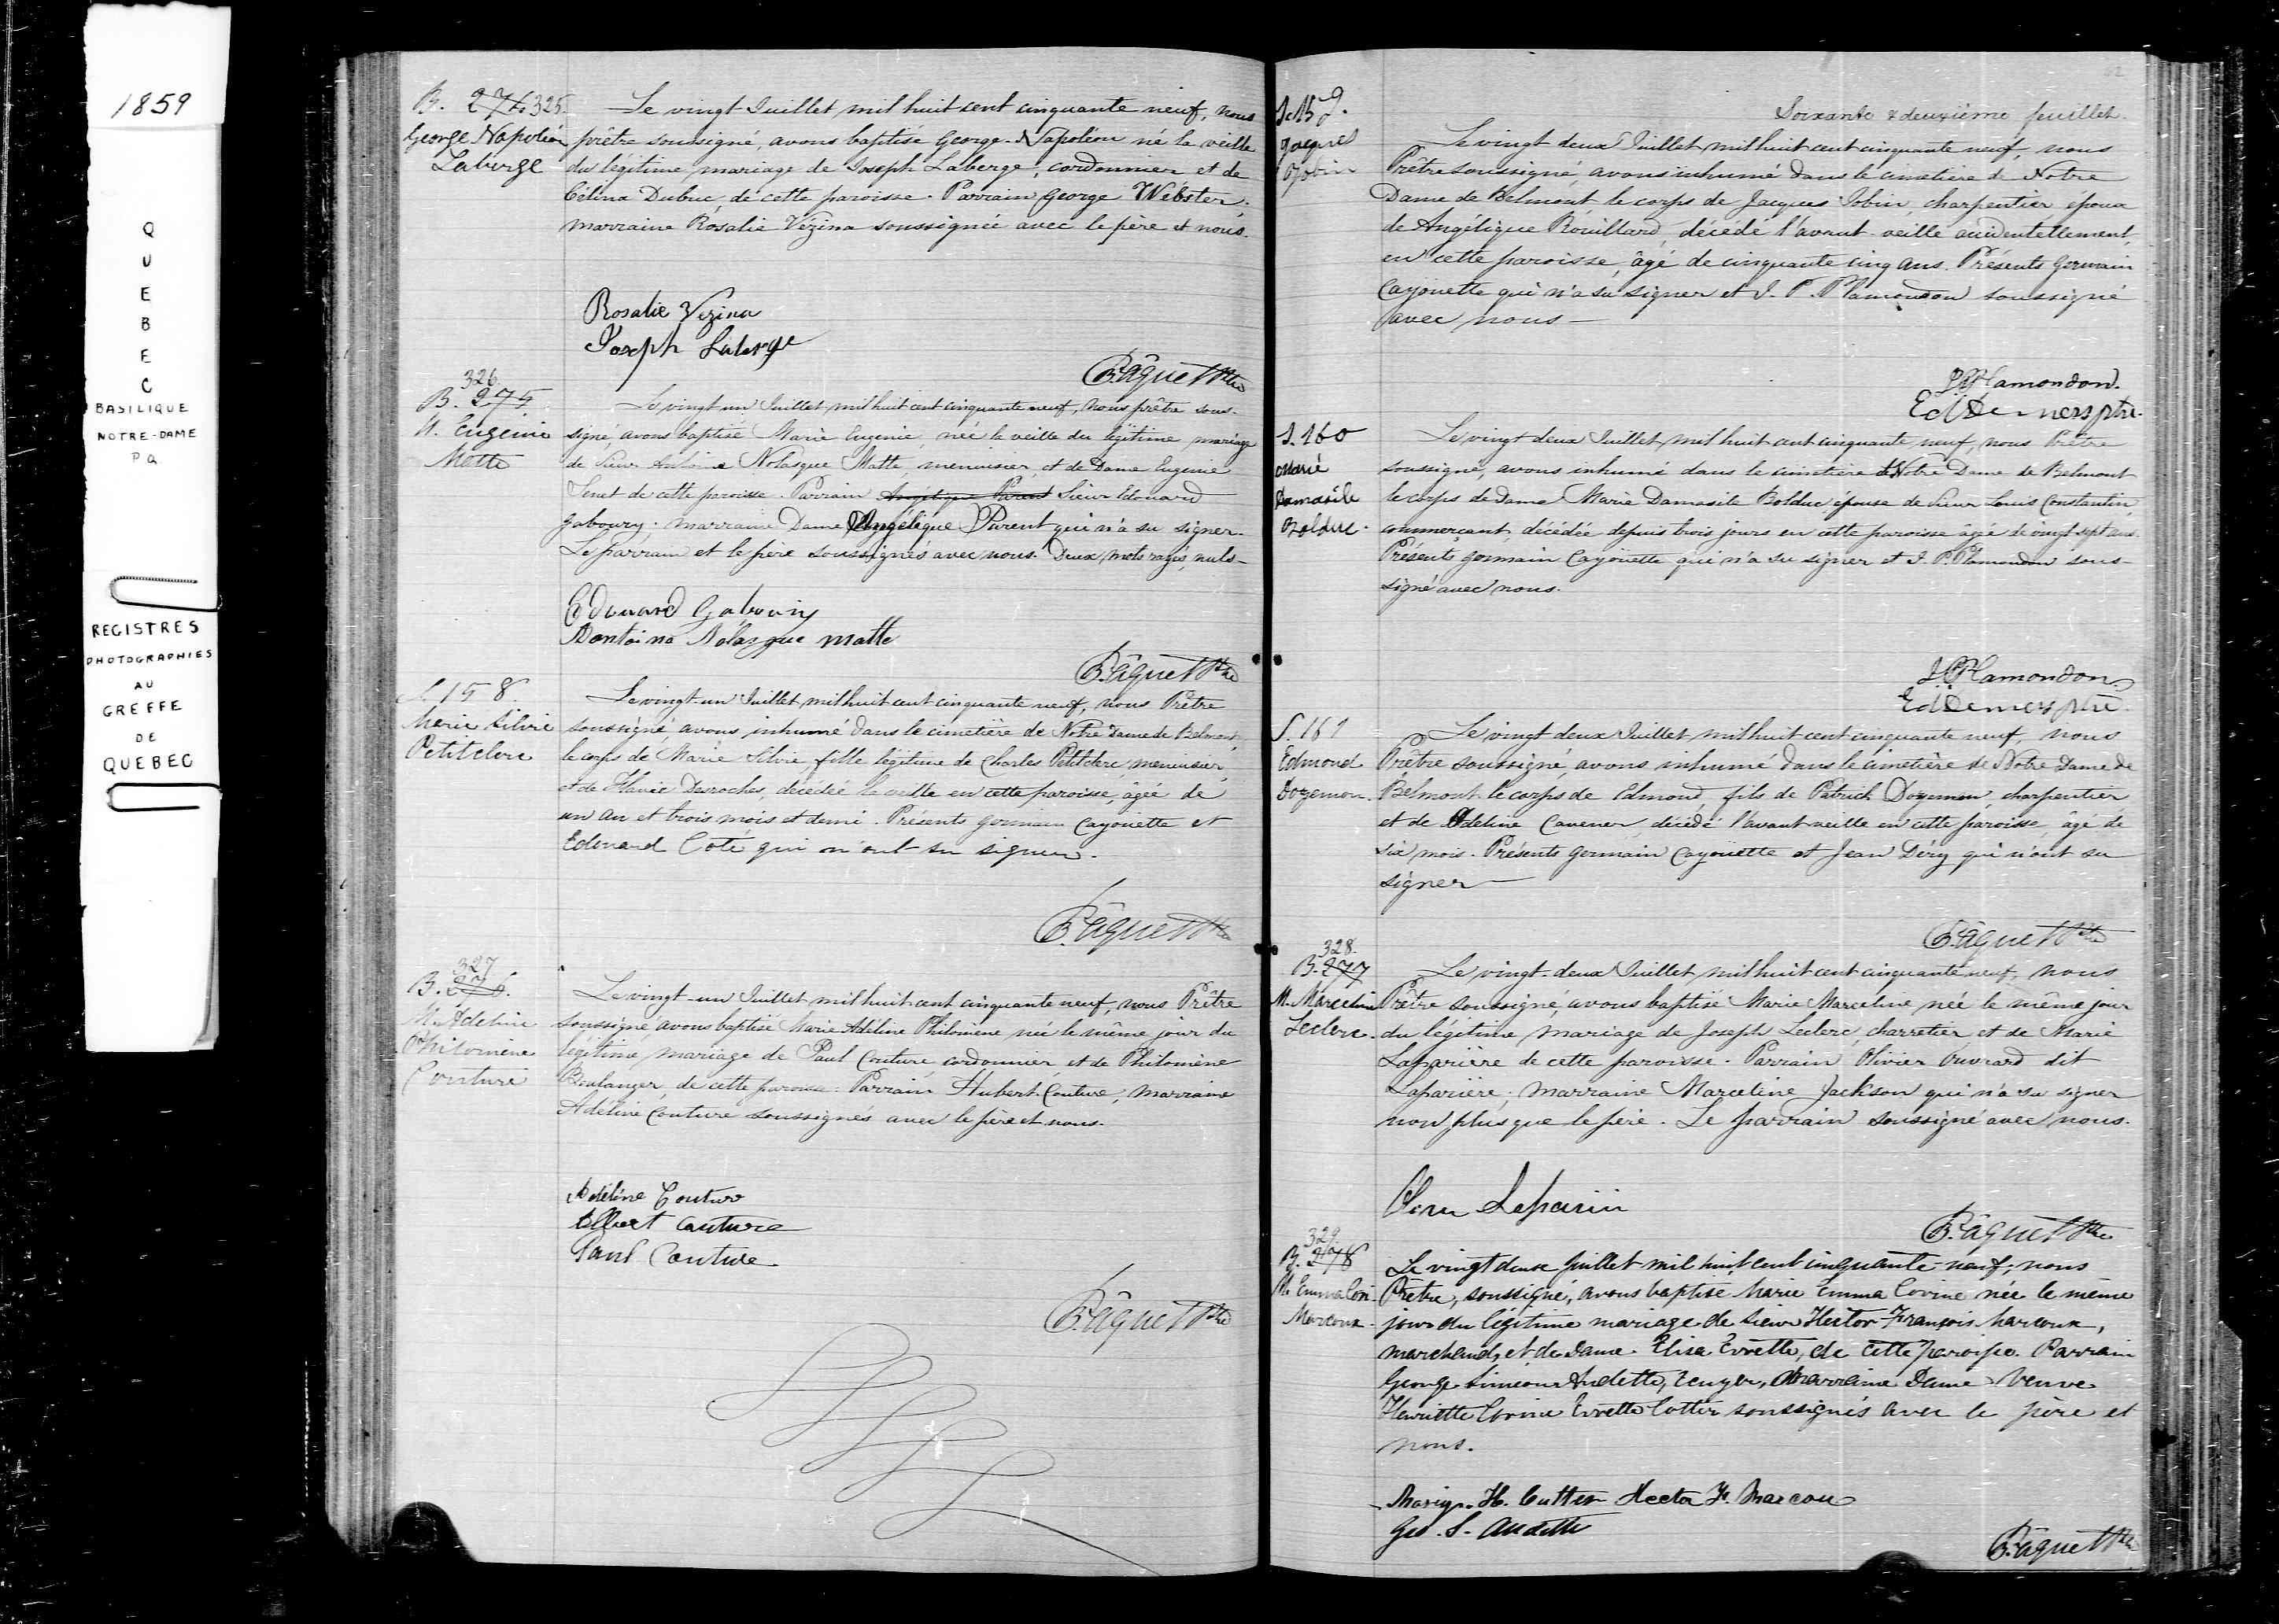 1859
QUEBEC
BASILIQUE
NOTRE-DAME
P.Q.
REGISTRES
PHOTOGRAPHIES
AU
GREFFE
DE
QUEBEC
B. 274 325.
George Napoléon
Laberge
Le vingt Juillet mil huit cent cinquante neuf, nous
prêtre soussigné, avons baptisé George Napoléon né la veille
du légitime mariage de Joseph Laberge, cordonnier et de
Célina Dubuc, de cette paroisse. Parrain George Webster,
marraine Rosalie Vézina soussignée avec le père et nous.
Rosalie Vezina
Joseph Laberge
B. Pâquet Ptre
326
B. 275
M. Eugenie
Matte
Le vingt un Juillet mil huit cent cinquante neuf, nous prêtre sous-
signé, avons baptisé Marie Eugenie, née la veille du légitime mariage
de Sieur Antoine Nolasque Matte, menuisier, et de Dame Eugenie
de cette paroisse. Parrain Angélique Parent Sieur Edouard
Gaboury; marraine Dame Angélique Parent qui n'a su signer.
Le parrain et le père soussignés avec nous. Deux mots rayés, nuls-
Edouard Gaboury
Antoine Nolasque Matte
B. Pâquet Ptre
S. 158
Marie Silvie
Petitclerc
Le vingt-un Juillet mil huit cent cinquante neuf, nous Prêtre
soussigné, avons inhumé dans le cimetière de Notre Dame de Belmont,
le corps de Marie Silvie, fille légitime de Charles Petitclerc, menuisier,
et de Flavie Desroches, décédée la veille en cette paroisse, âgée de
un an et trois mois et demi. Présents Germain Cayouette et
Edouard Coté qui n'ont su signer.
B. Pâquet Ptre
327
B. 276.
M. Adeline
Philomène
Couture
Le vingt-un Juillet mil huit cent cinquante neuf, nous Prêtre
soussigné, avons baptisé Marie Adéline Philomène née le même jour du
légitime mariage de Paul Couture, cordonnier, et de Philomène
Boulanger, de cette paroisse. Parrain Hubert Couture, marraine
Adéline Couture soussignés avec le père et nous.
Adéline Couture
Couture
Paul Couture
B. Pâquet Ptre
62
Soixante & deuxième feuillet.
S. 159.
Jacques
Jobin
Le vingt deux Juillet mil huit cent cinquante neuf, nous
Prêtre soussigné, avons inhumé dans le cimetière de Notre
Dame de Belmont le corps de Jacques Jobin, charpentier époux
de Angélique Rouillard, décédé l'avant-veille accidentellement,
en cette paroisse, âgé de cinquante cinq ans. Présents Germain
Cayouette qui n'a su signer et J. P. Plamondon soussigné
avec nous—
J. P. Plamondon.
Ed. Demers ptre.
S. 160
Marie
Damasile
Bolduc.
Le vingt deux Juillet mil huit cent cinquante neuf, nous Prêtre
soussigné, avons inhumé dans le cimetière de Notre Dame de Belmont
le corps de Dame Marie Damasile Bolduc épouse de Sieur Louis Constantin,
commerçant, décédée depuis trois jours en cette paroisse âgée de vingt sept ans.
Présents Germain Cayouette qui n'a su signer et J. P. Plamondon sous-
signé avec nous.
J. P. Plamondon
Ed. Demers ptre
S. 161
Edmond
Doyemon.
Le vingt deux Juillet mil huit cent cinquante neuf, nous
Prêtre soussigné, avons inhumé dans le cimetière de Notre Dame de
Belmont le corps de Edmond, fils de Patrick Doyemon, charpentier
et de Adeline Cavener, décédé l'avant veille en cette paroisse, âgé de
six mois. Présents Germain Cayouette et Jean Déry qui n'ont su
signer—
B. Pâquet Ptre
328.
B. 277
M. Marceline
Leclerc.
Le vingt-deux Juillet mil huit cent cinquante neuf, nous
Prêtre soussigné, avons baptisé Marie Marceline née le même jour
du légitime mariage de Joseph Leclerc, charretier, et de Marie
Laparière de cette paroisse. Parrain Olivier Ouvrard dit
Laparière; marraine Marceline Jackson qui n'a su signer
non plus que le père. Le parrain soussigné avec nous.
B. Pâquet Ptre
329.
B. 278
M. Emma Cori.
Marcoux.
Le vingt deux Juillet mil huit cent cinquante-neuf, nous
Prêtre, soussigné, avons baptisé Marie Emma Corine née le même
jour du légitime mariage de Sieur Hector François Marcoux,
marchand, et de Dame Elisa Evrette, de cette paroisse. Parrain
George Siméon Audette, marraine Dame Veuve
Henriette Corine Evrette Cutter soussignés avec le père et
nous.
H. Cutter Hector F. Marcou
Geo. S. Audette
B. Pâquet Ptre